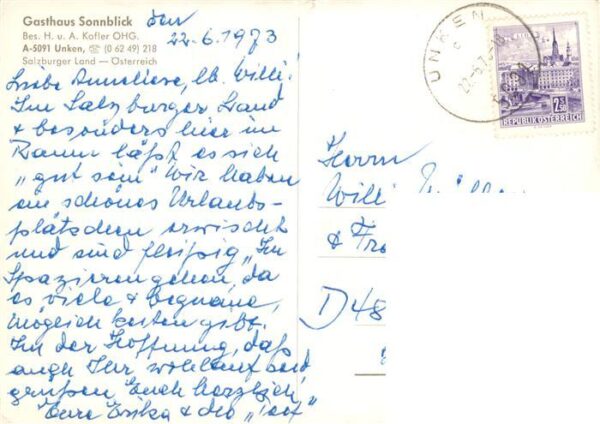 Gasthaus Sonnblick
Bes. H. u. A. Kofler OHG.
A-5091 Unken, ☎ (0 62 49) 218
Salzburger Land — Österreich
den
22.6.1973
Liebe Anneliese, lb. Willi!
Im Salzburger Land
+ besonders hier im
Raum läßt es sich
"gut sein" Wir haben
ein schönes Urlaubs-
plätzchen erwischt
und sind fleißig "Im
Spazierengehen, da
es viele + bequeme,
Möglichkeiten gibt.
In der Hoffnung, daß
auch Ihr wohlauf seid
grüßen Euch herzlich
Eure Erika &
Herrn
Willi
& Fr
D 48
UNKEN
22.-6.73
2.50
REPUBLIK ÖSTERREICH